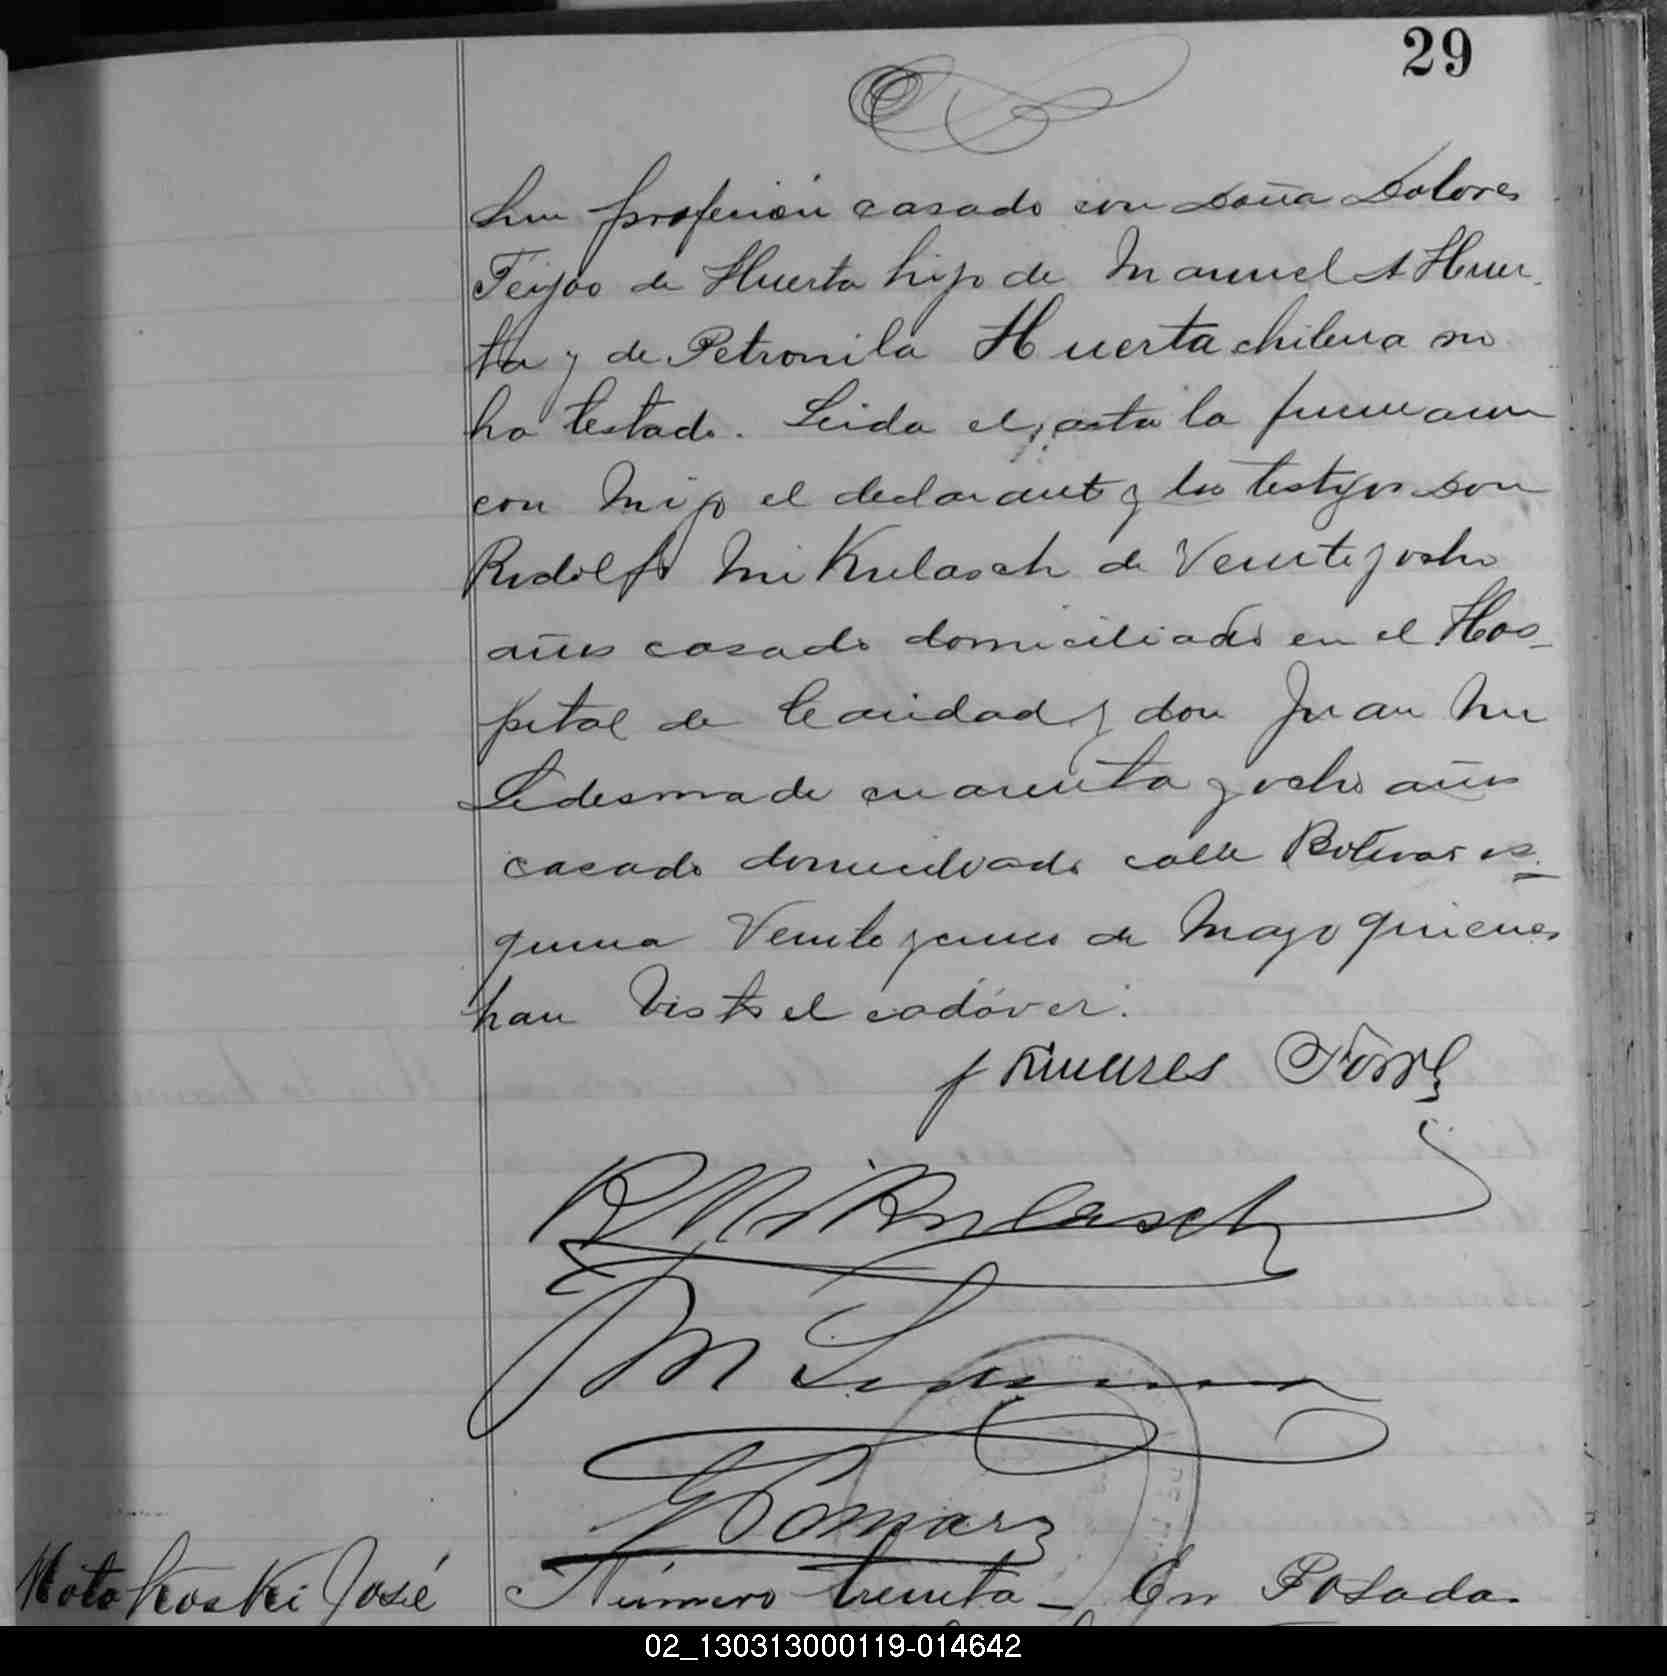 29
Sin profesión casado con Doña Dolores
Feijoo de Huerta hijo de Manuel A Huer-
ta y de Petronila Huerta chilena no
ha testado. Leida el acta la firmaron
con migo el declarante y los testigos Don
Rodolfo Mikulasch de Veinte y ocho
años casado domiciliado en el Hos-
pital de Caridad y don Juan M
Ledesma de cuarenta y ocho años
casado domiciliado calle Bolivar es-
quina Veinte y cinco de Mayo quienes
han visto el cadáver.
J Linares
R Mikulasch
J M Ledesma
Motokoski José
Número treinta - En Posada
02_130313000119-014642